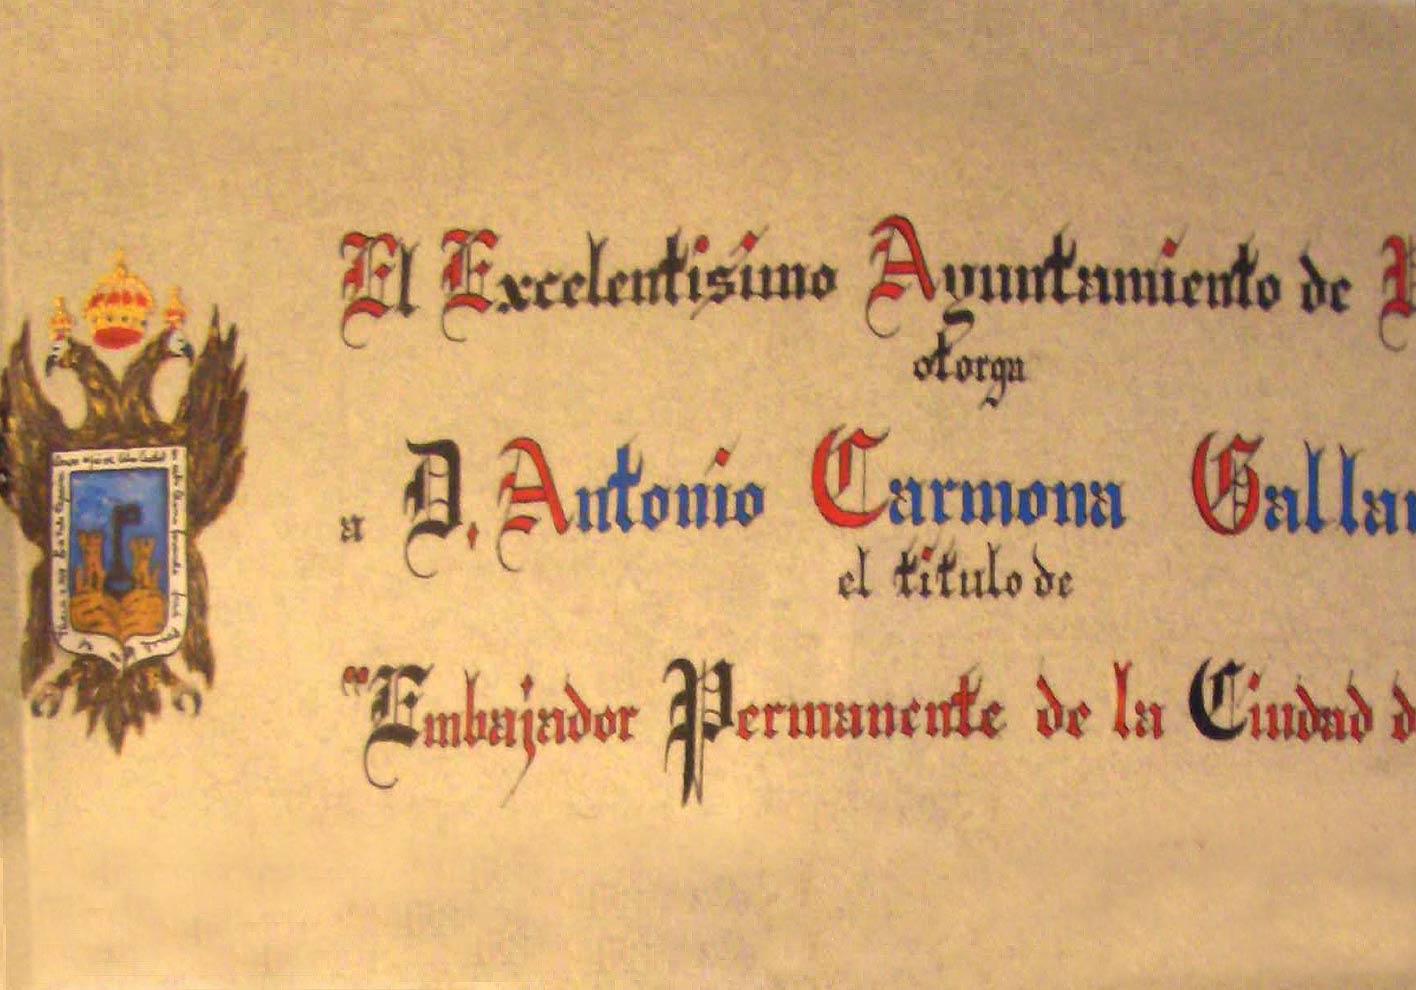 El Excelentisimo Ayuntamiento de
otorga
a D. Antonio Carmona Gallar
el titulo de
"Embajador Permanente de la Ciudad d